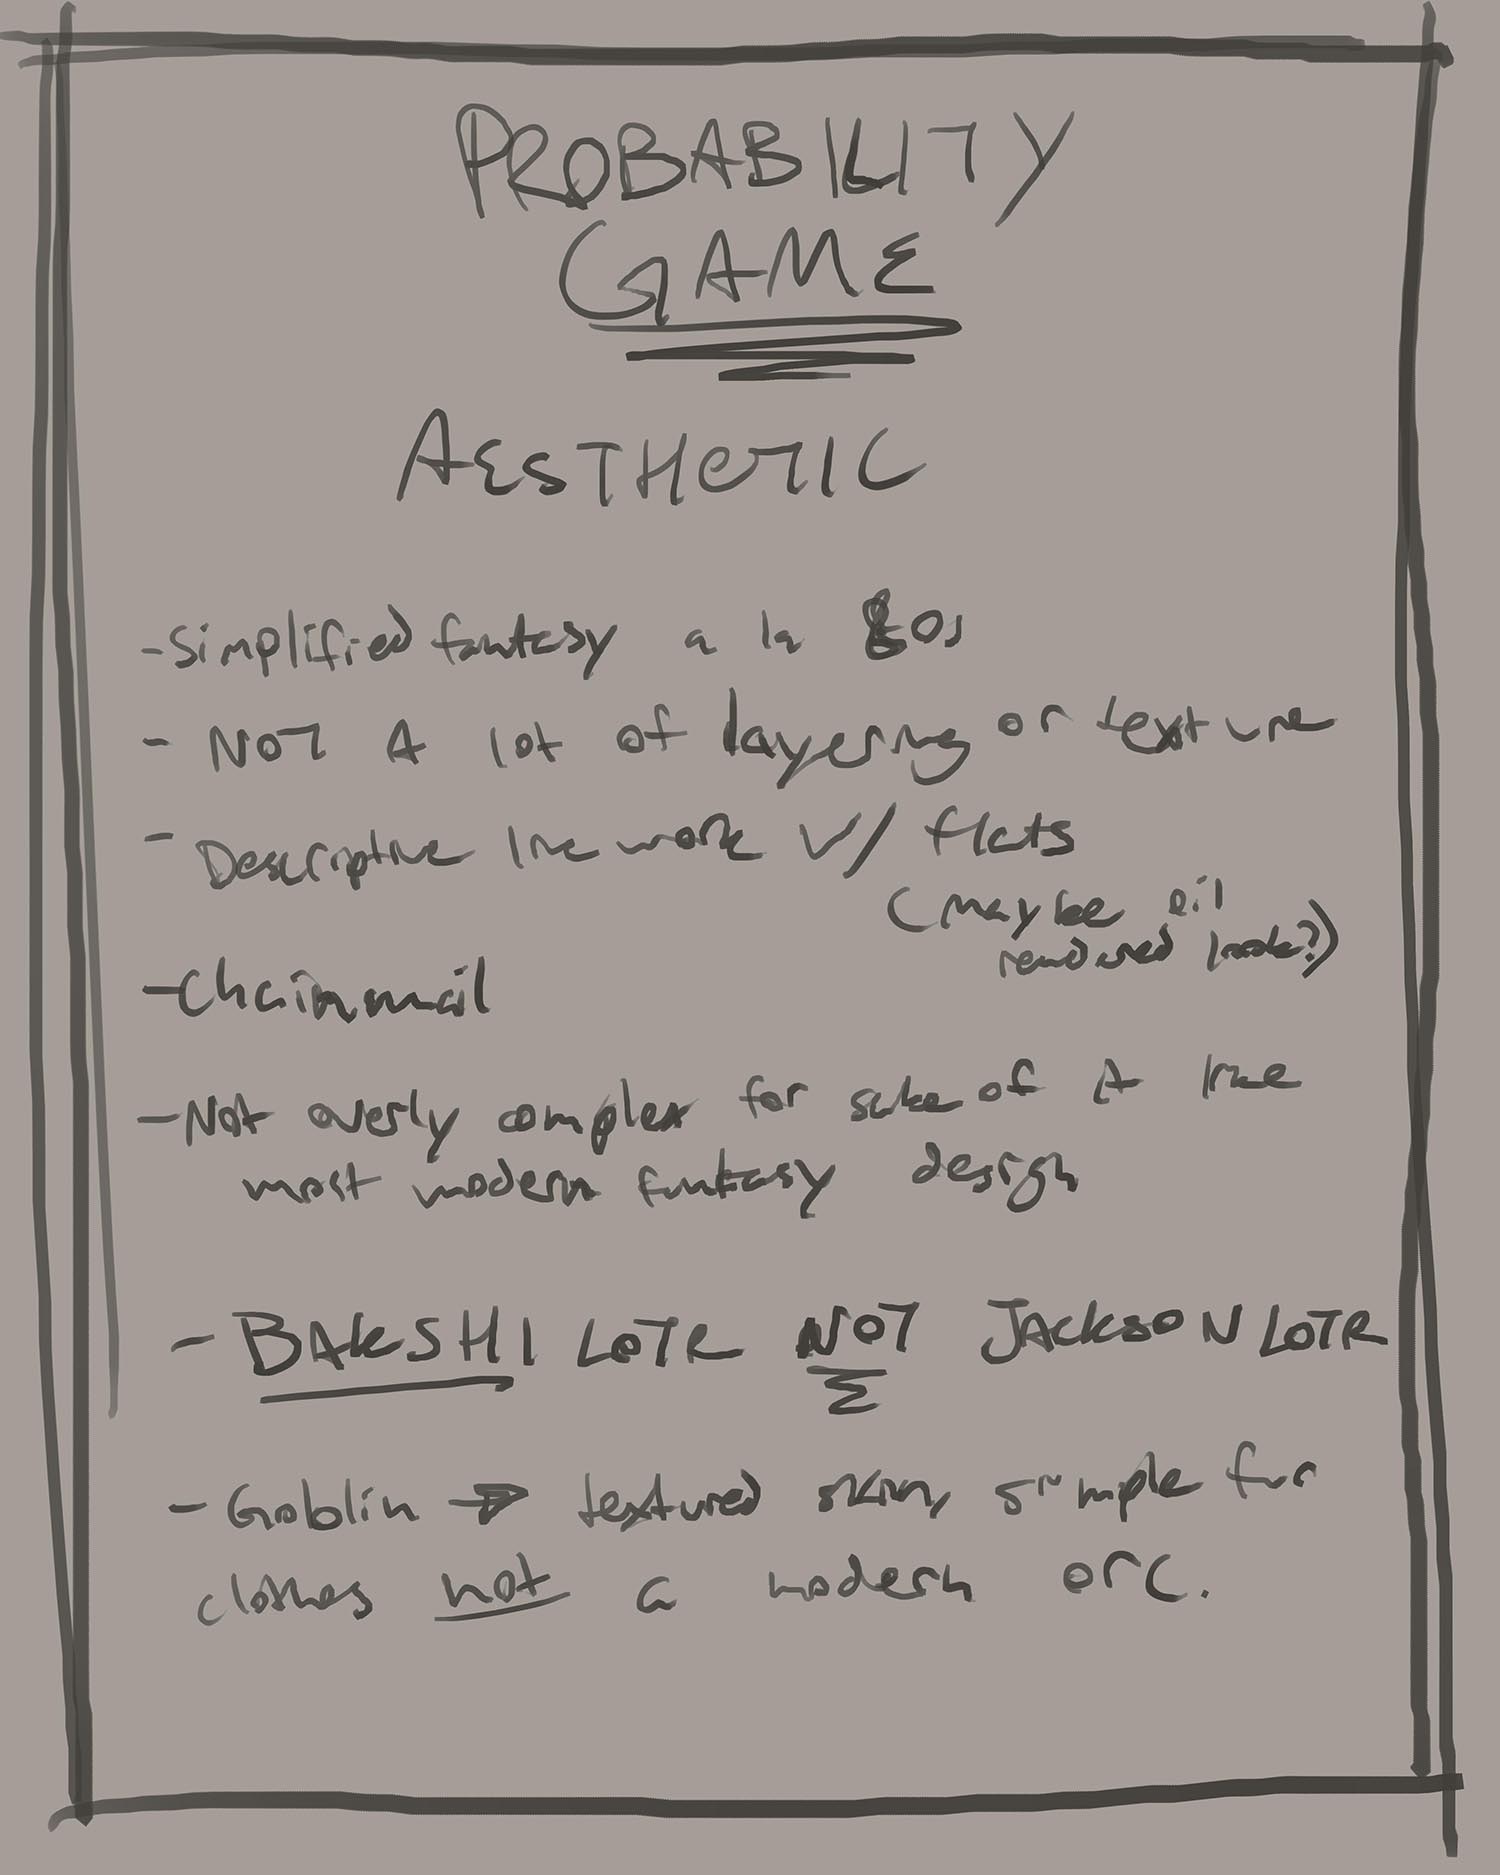 PROBABILITY
GAME
AESTHETIC
- Simplified fantasy a la 80s
- NOT A lot of layering or texture
- Descriptive line work w/ flats
(maybe oil
rendered look?)
- Chainmail
- Not overly complex for sake of it like
most modern fantasy design
- BAKSHI LOTR NOT JACKSON LOTR
- Goblin → textured skin, simple fur
clothes not a modern orc.